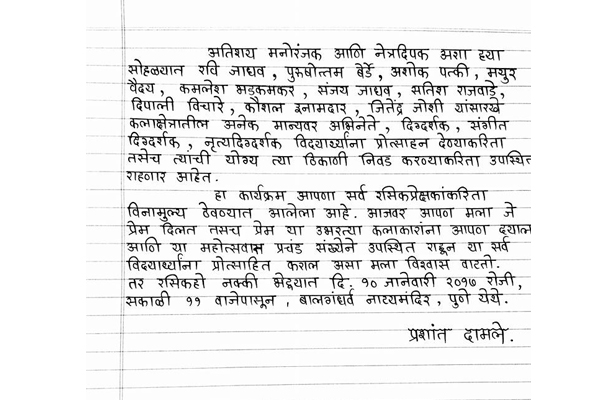 अतिशय मनोरंजक आणि नेत्रदिपक अशा ह्या
सोहळ्यात रवि जाधव, पुरुषोत्तम बेर्डे, अशोक पत्की, मयुर
वैद्य, कमलेश भडकमकर, संजय जाधव, सतिश राजवाडे,
दिपाली विचारे, कौशल इनामदार, जितेंद्र जोशी यांसारखे
कलाक्षेत्रातील अनेक मान्यवर अभिनेते, दिग्दर्शक, संगीत
दिग्दर्शक, नृत्यदिग्दर्शक विद्यार्थ्यांना प्रोत्साहन देण्याकरिता
तसेच त्यांची योग्य त्या ठिकाणी निवड करण्याकरिता उपस्थित
राहणार आहेत.
हा कार्यक्रम आपणा सर्व रसिकप्रेक्षकांकरिता
विनामुल्य ठेवण्यात आलेला आहे. आजवर आपण मला जे
प्रेम दिलत तसच प्रेम या उभरत्या कलाकारांना आपण द्याल
आणि या महोत्सवास प्रचंड संख्येने उपस्थित राहून या सर्व
विद्यार्थ्यांना प्रोत्साहित कराल असा मला विश्वास वाटतो.
तर रसिकहो नक्की भेटूयात दि. १० जानेवारी २०१७ रोजी,
सकाळी ११ वाजेपासून, बालगंधर्व नाट्यमंदिर, पुणे येथे.
प्रशांत दामले.